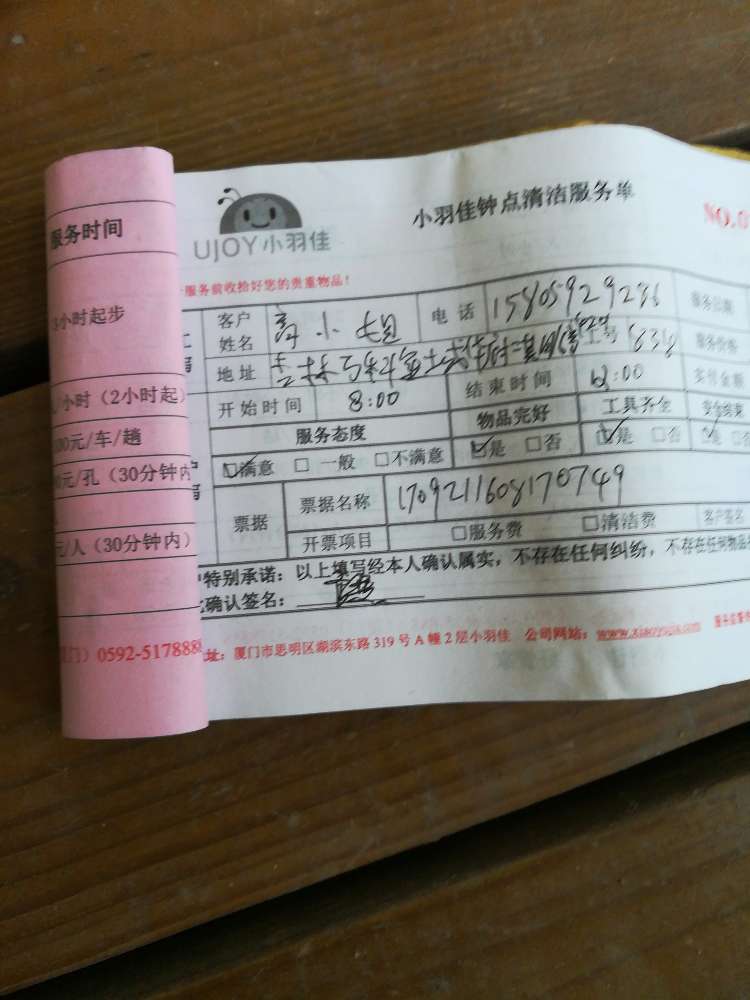 服务时间
小时起步
/小时（2小时起）
00元/车/趟
元/孔（30分钟内
元/人（30分钟内）
）0592-5178888
UJOY小羽佳
小羽佳钟点清洁服务单
NO.0
服务前收拾好您的贵重物品！
客户姓名 小姐 电话 15805929286 服务日期
地址 工号 8318 服务价格
开始时间 8:00 结束时间 12:00 实付金额
服务态度 物品完好 工具齐全 安全结束
☑满意 □一般 □不满意 ☑是 □否 ☑是 □否 ☑是 □
票据 票据名称 1709211608170749
开票项目 □服务费 □清洁费 客户签名
特别承诺：以上填写经本人确认属实，不存在任何纠纷，不存在任何物品
确认签名：
址：厦门市思明区湖滨东路319号A幢2层小羽佳 公司网站：www.xiaoyujia.com